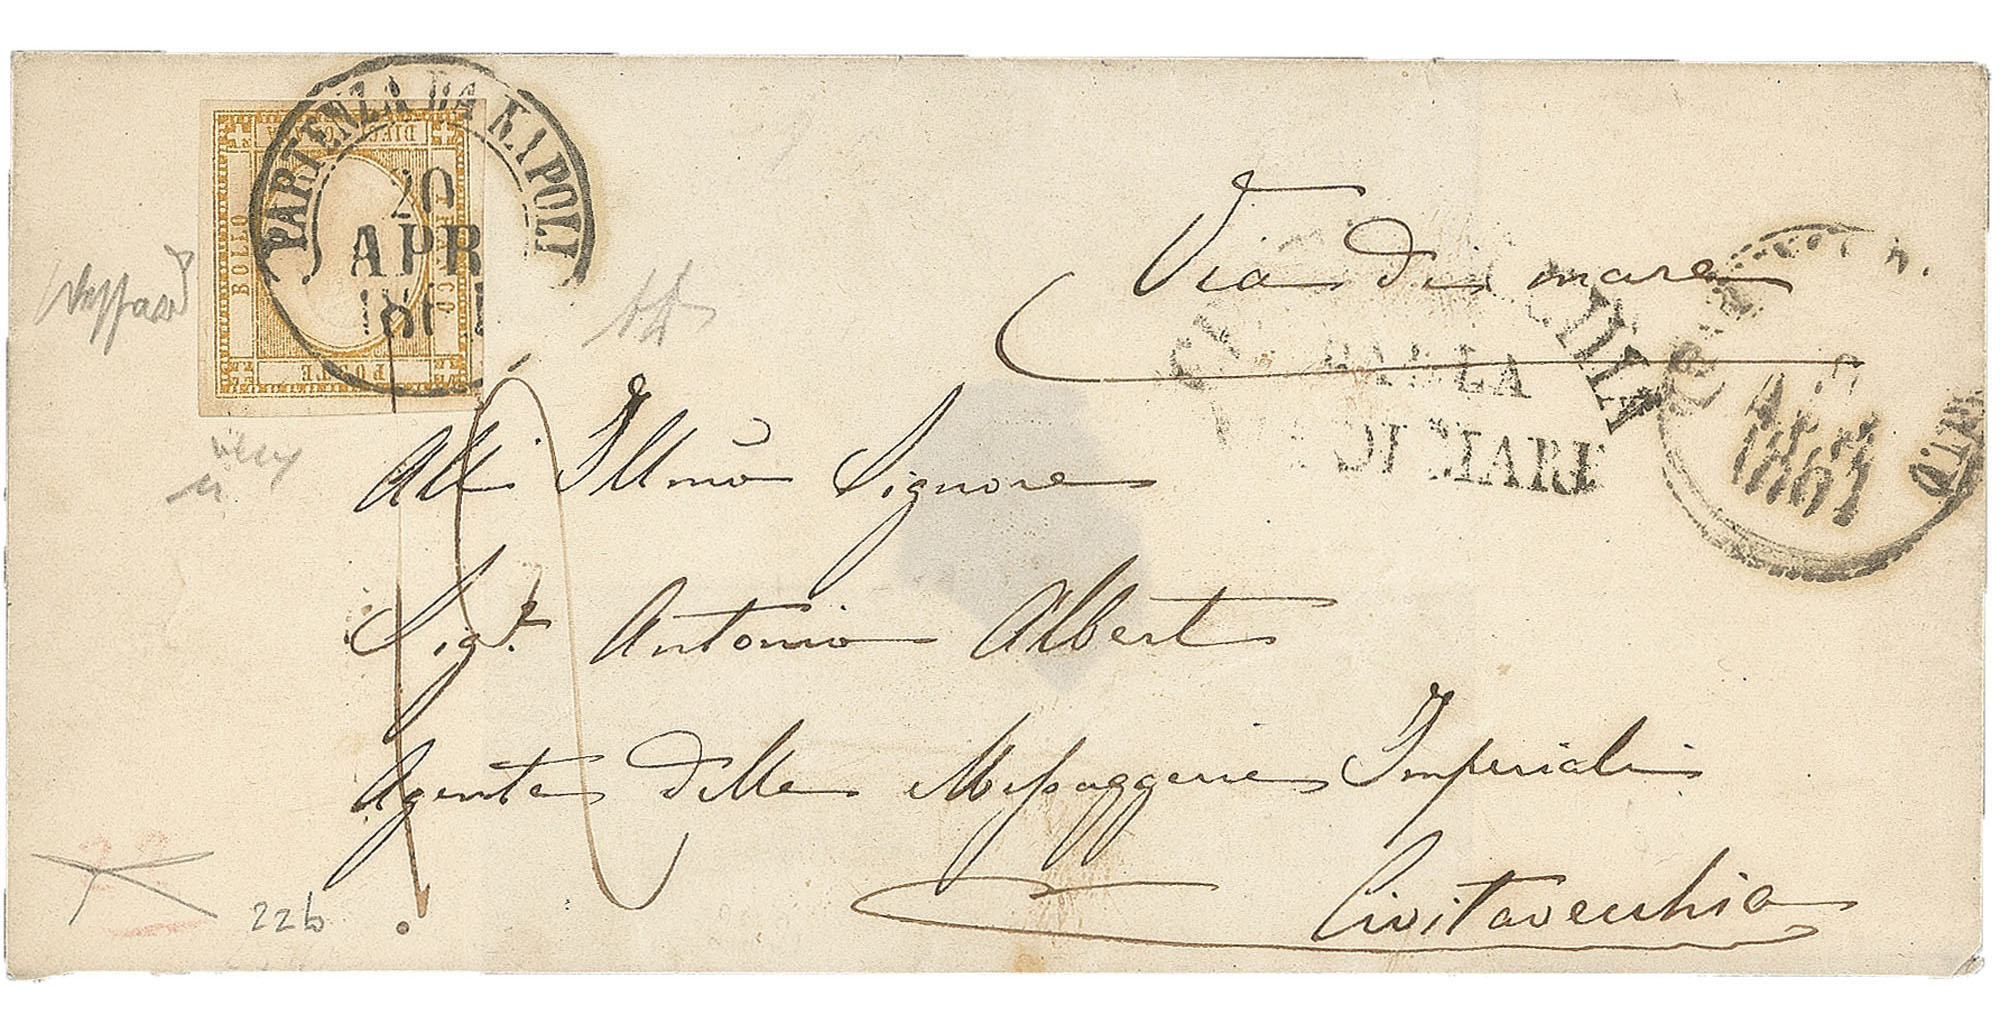 PARTENZA DA NAPOLI
20
APR
BOLLO
DIECI GRANA
FRANCO
POSTALE
Via di mare
DALLA
VIA DI MARE
APR
1861
All' Illmo Signore
Sigr. Antonio Albert
Agente delle Messaggerie Imperiali
Civitavecchia
22b